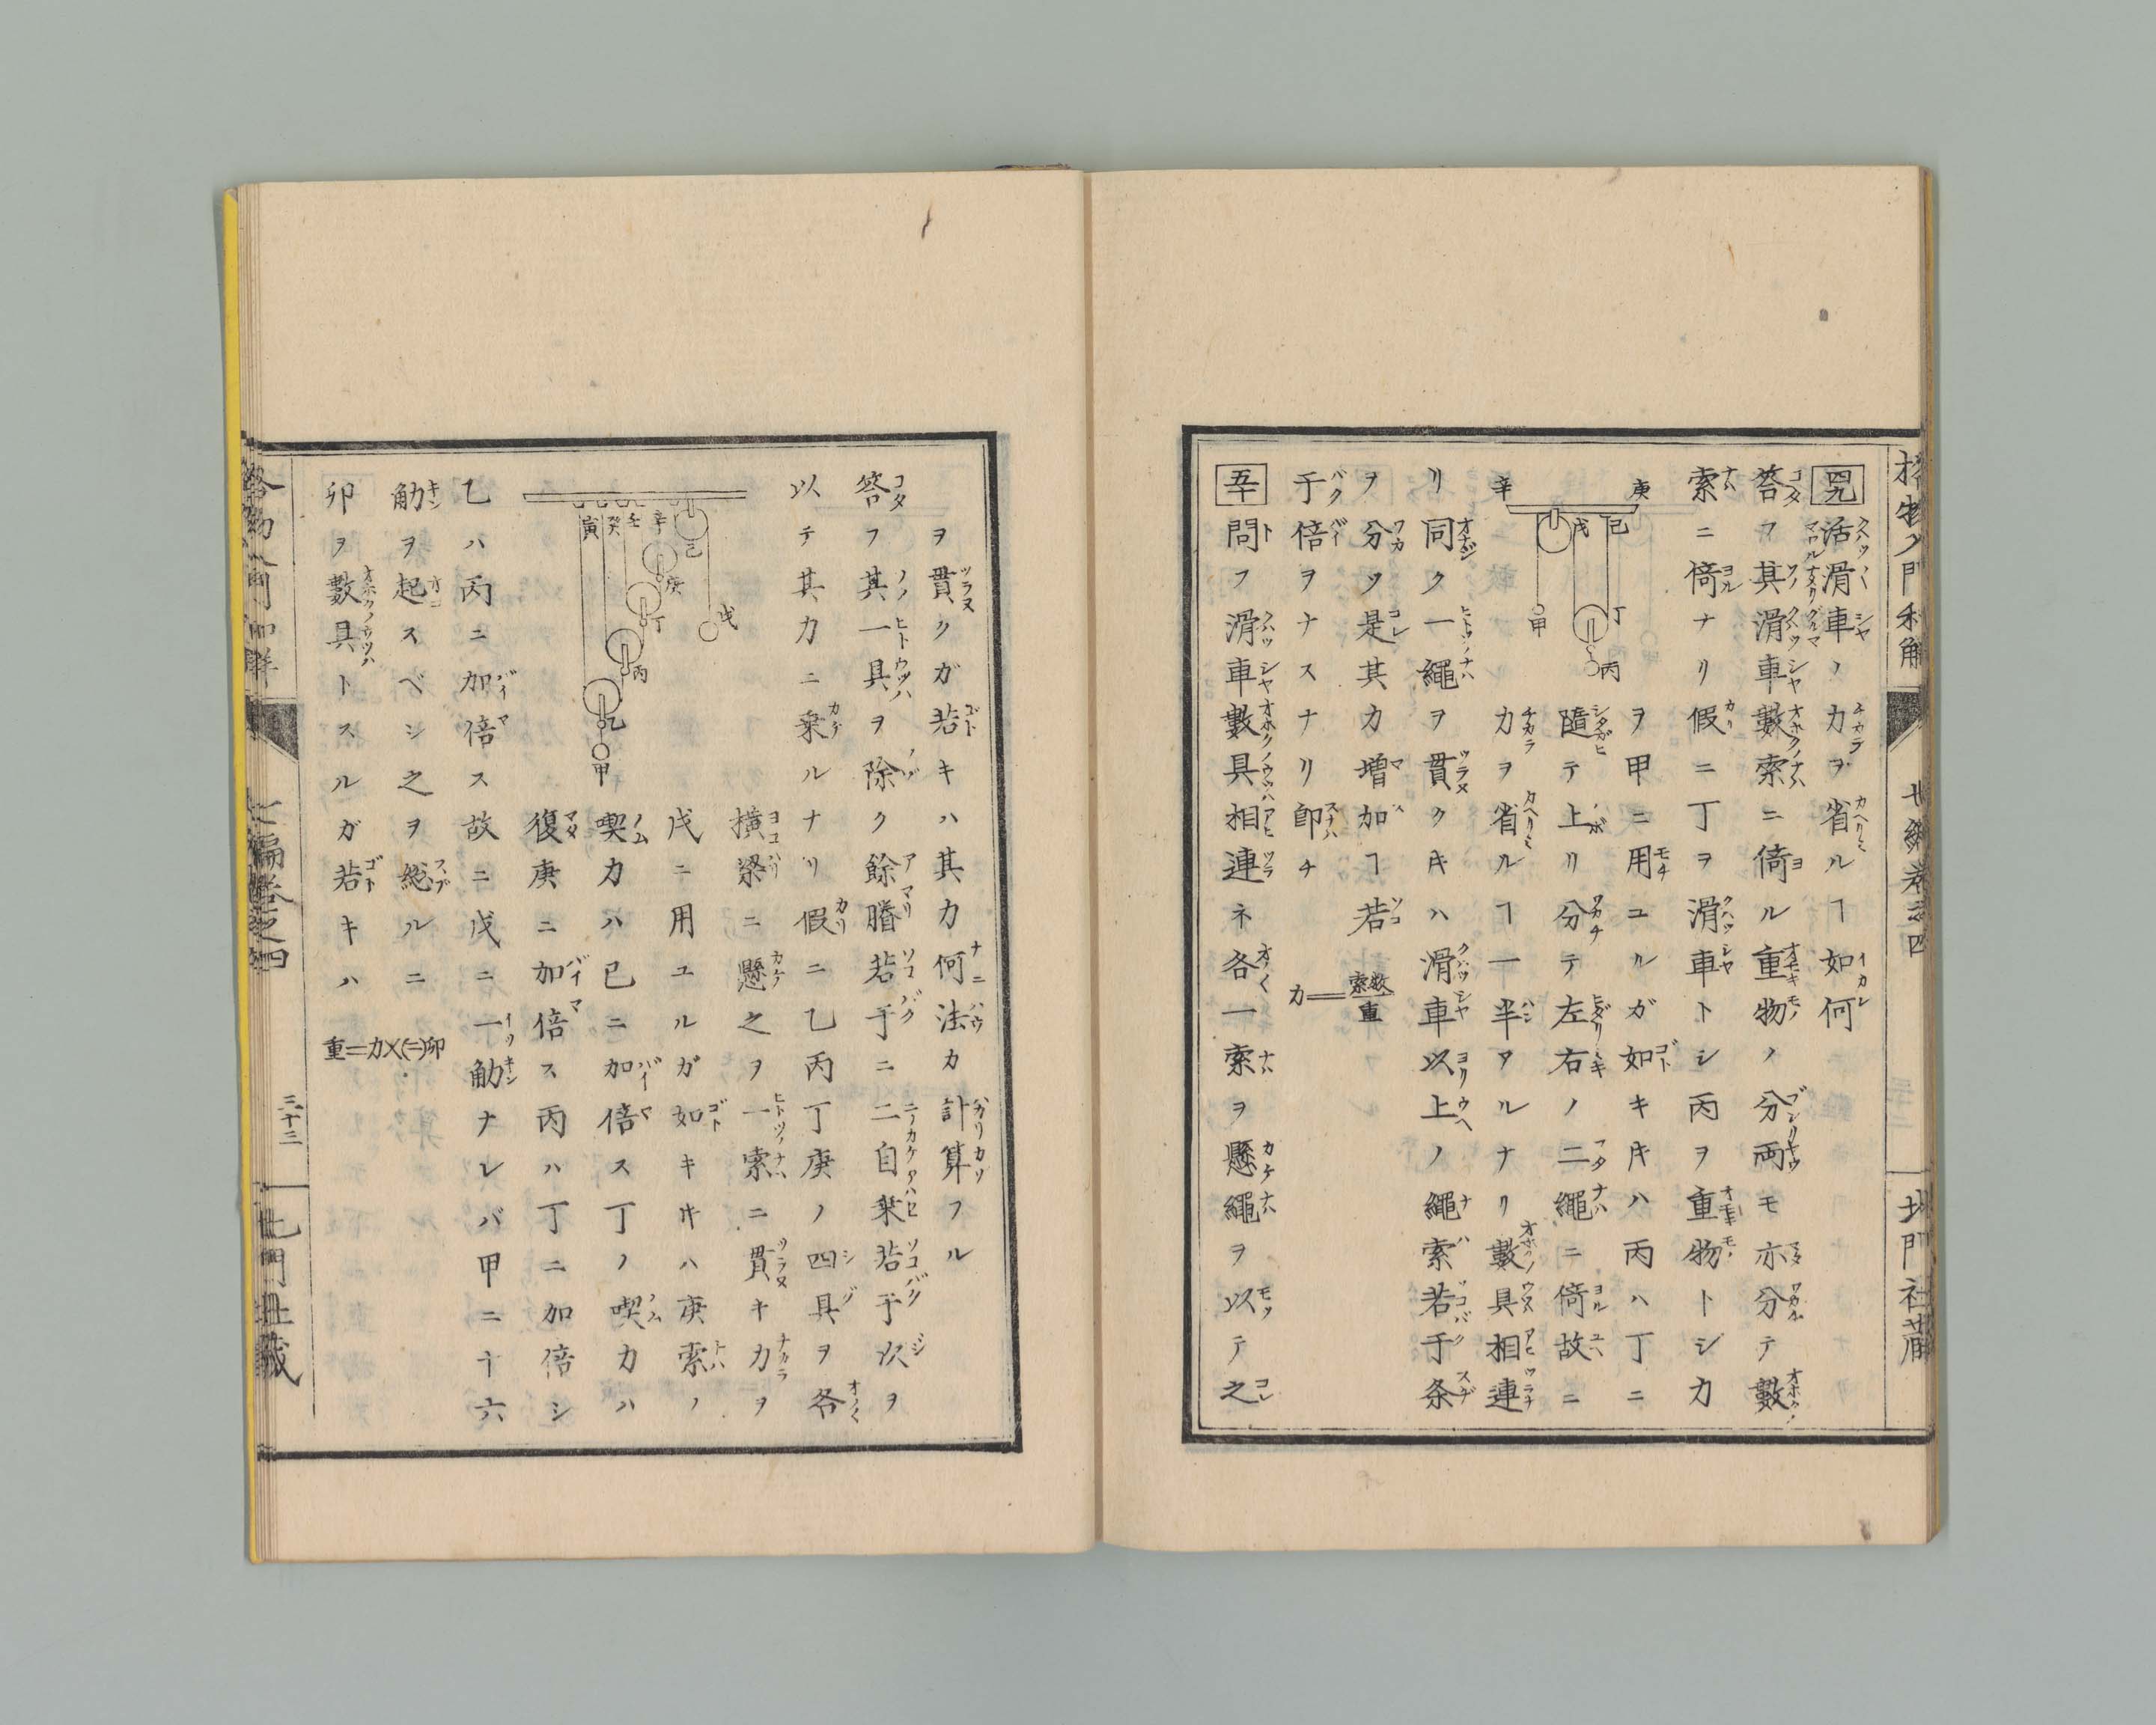 四九 活滑車ノ力ヲ省ルヿ如何
答フ其滑車數索ニ倚ル重物ノ分兩モ亦分テ數
索ニ倚ナリ假ニ丁ヲ滑車トシ丙ヲ重物トシ力
ヲ甲ニ用ユルガ如キキハ丙ハ丁ニ
隨テ上リ分テ左右ノ二繩ニ倚故ニ
力ヲ省ルヿ一半アルナリ數具相連
リ同ク一繩ヲ貫クキハ滑車以上ノ繩索若干条
ヲ分ツ是其力増加ヿ若
干倍ヲナスナリ即チ
力＝重/數索
庚 己 戊 辛 甲 丁 丙
五十 問フ滑車數具相連ネ各一索ヲ懸繩ヲ以テ之
ヲ貫クガ若キハ其力何法カ計算フル
答フ其一具ヲ除ク餘賸若干ニ二自乘若干次ヲ
以テ其力ニ乘ルナリ假ニ乙丙丁庚ノ四具ヲ各
横梁ニ懸之ヲ一索ニ貫キ力ヲ
戊ニ用ユルガ如キキハ庚索ノ
喫力ハ已ニ加倍ス丁ノ喫力ハ
復庚ニ加倍ス丙ハ丁ニ加倍シ
寅 癸 壬 辛 己 戊 庚 丁 丙 乙 甲
乙ハ丙ニ加倍ス故ニ戊ニ一觔ナレバ甲ニ十六
觔ヲ起スベシ之ヲ総ルニ
卯ヲ數具トスルガ若キハ
重＝力×(二)卯
三十三